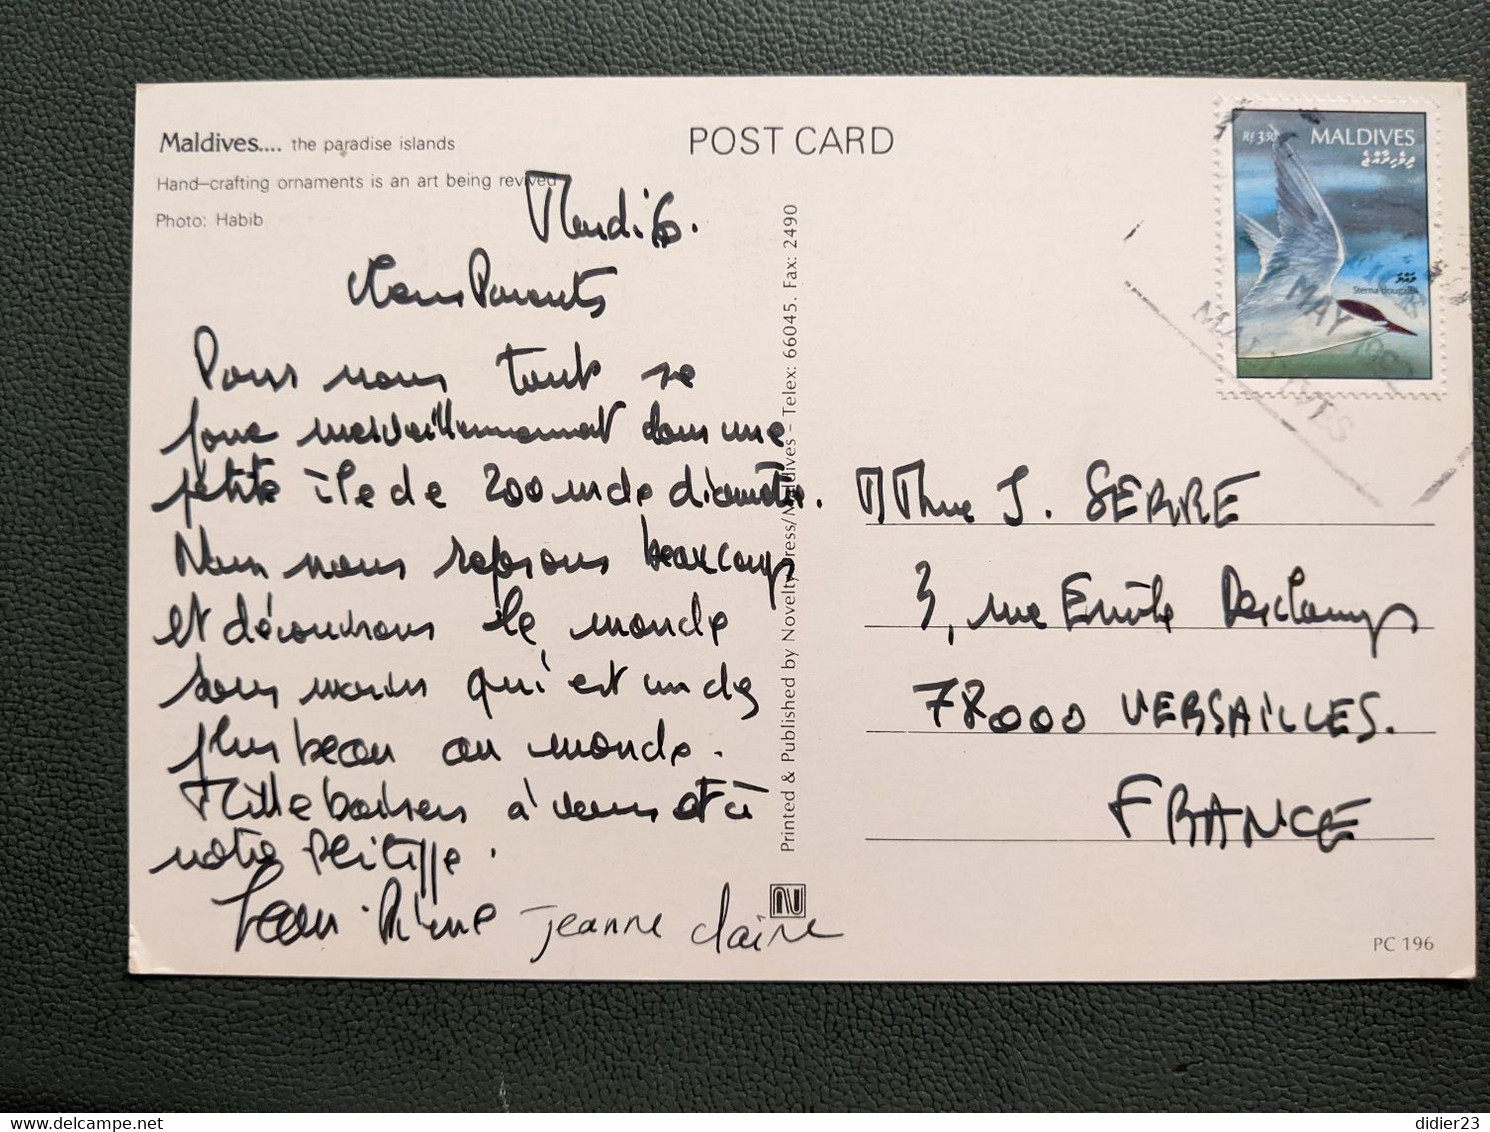 Maldives.... the paradise islands
Hand-crafting ornaments is an art being revived
Photo: Habib
POST CARD
Rf 3.50 MALDIVES
ދިވެހިރާއްޖެ
MAY
MALDIVES
Mardi 6.
Chers Parents
Pour nous tout se
passe merveilleusement dans une
petite île de 200 m de diamètre.
Nous nous reposons beaucoup
et découvrons le monde
sous marin qui est un des
plus beau au monde.
Mille baisers à vous et à
notre Philippe.
Jean-Pierre jeanne claire
Printed & Published by Novelty Press/Maldives - Telex: 66045. Fax: 2490
M Mme J. SERRE
3, rue Emile Deschamps
78000 VERSAILLES.
FRANCE
PC 196
didier23